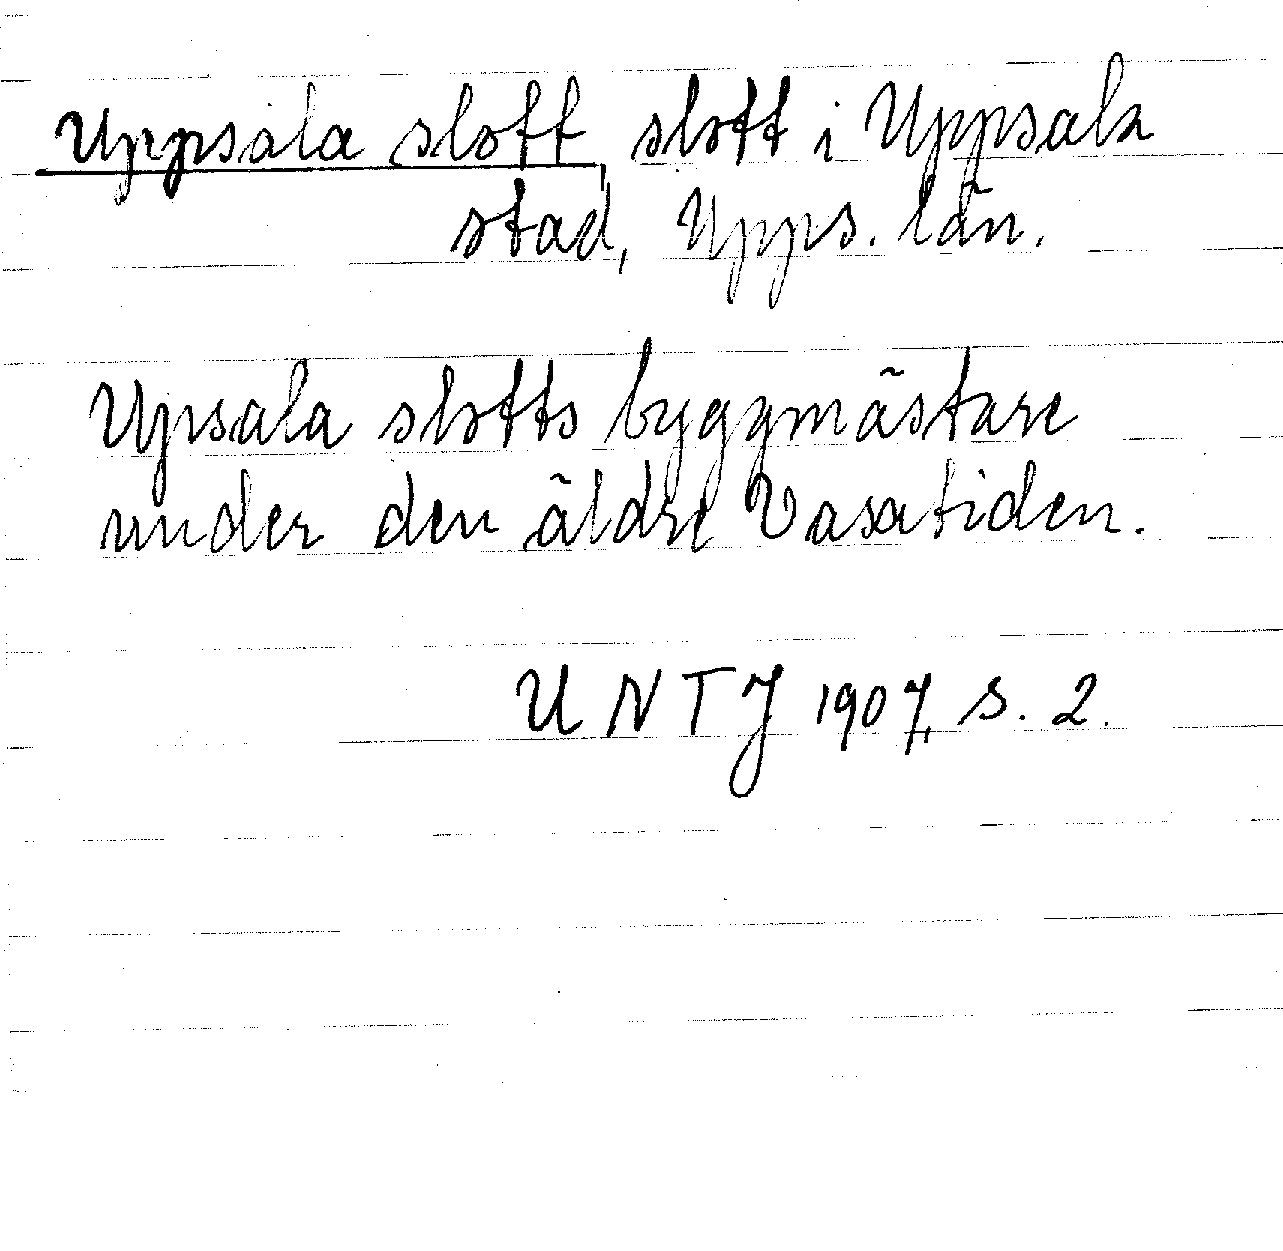 Uppsala slott, slott i Uppsala
stad, Upps. län.
Upsala slotts byggmästare
under den äldre Vasatiden.
UNTJ 1907, s. 2.